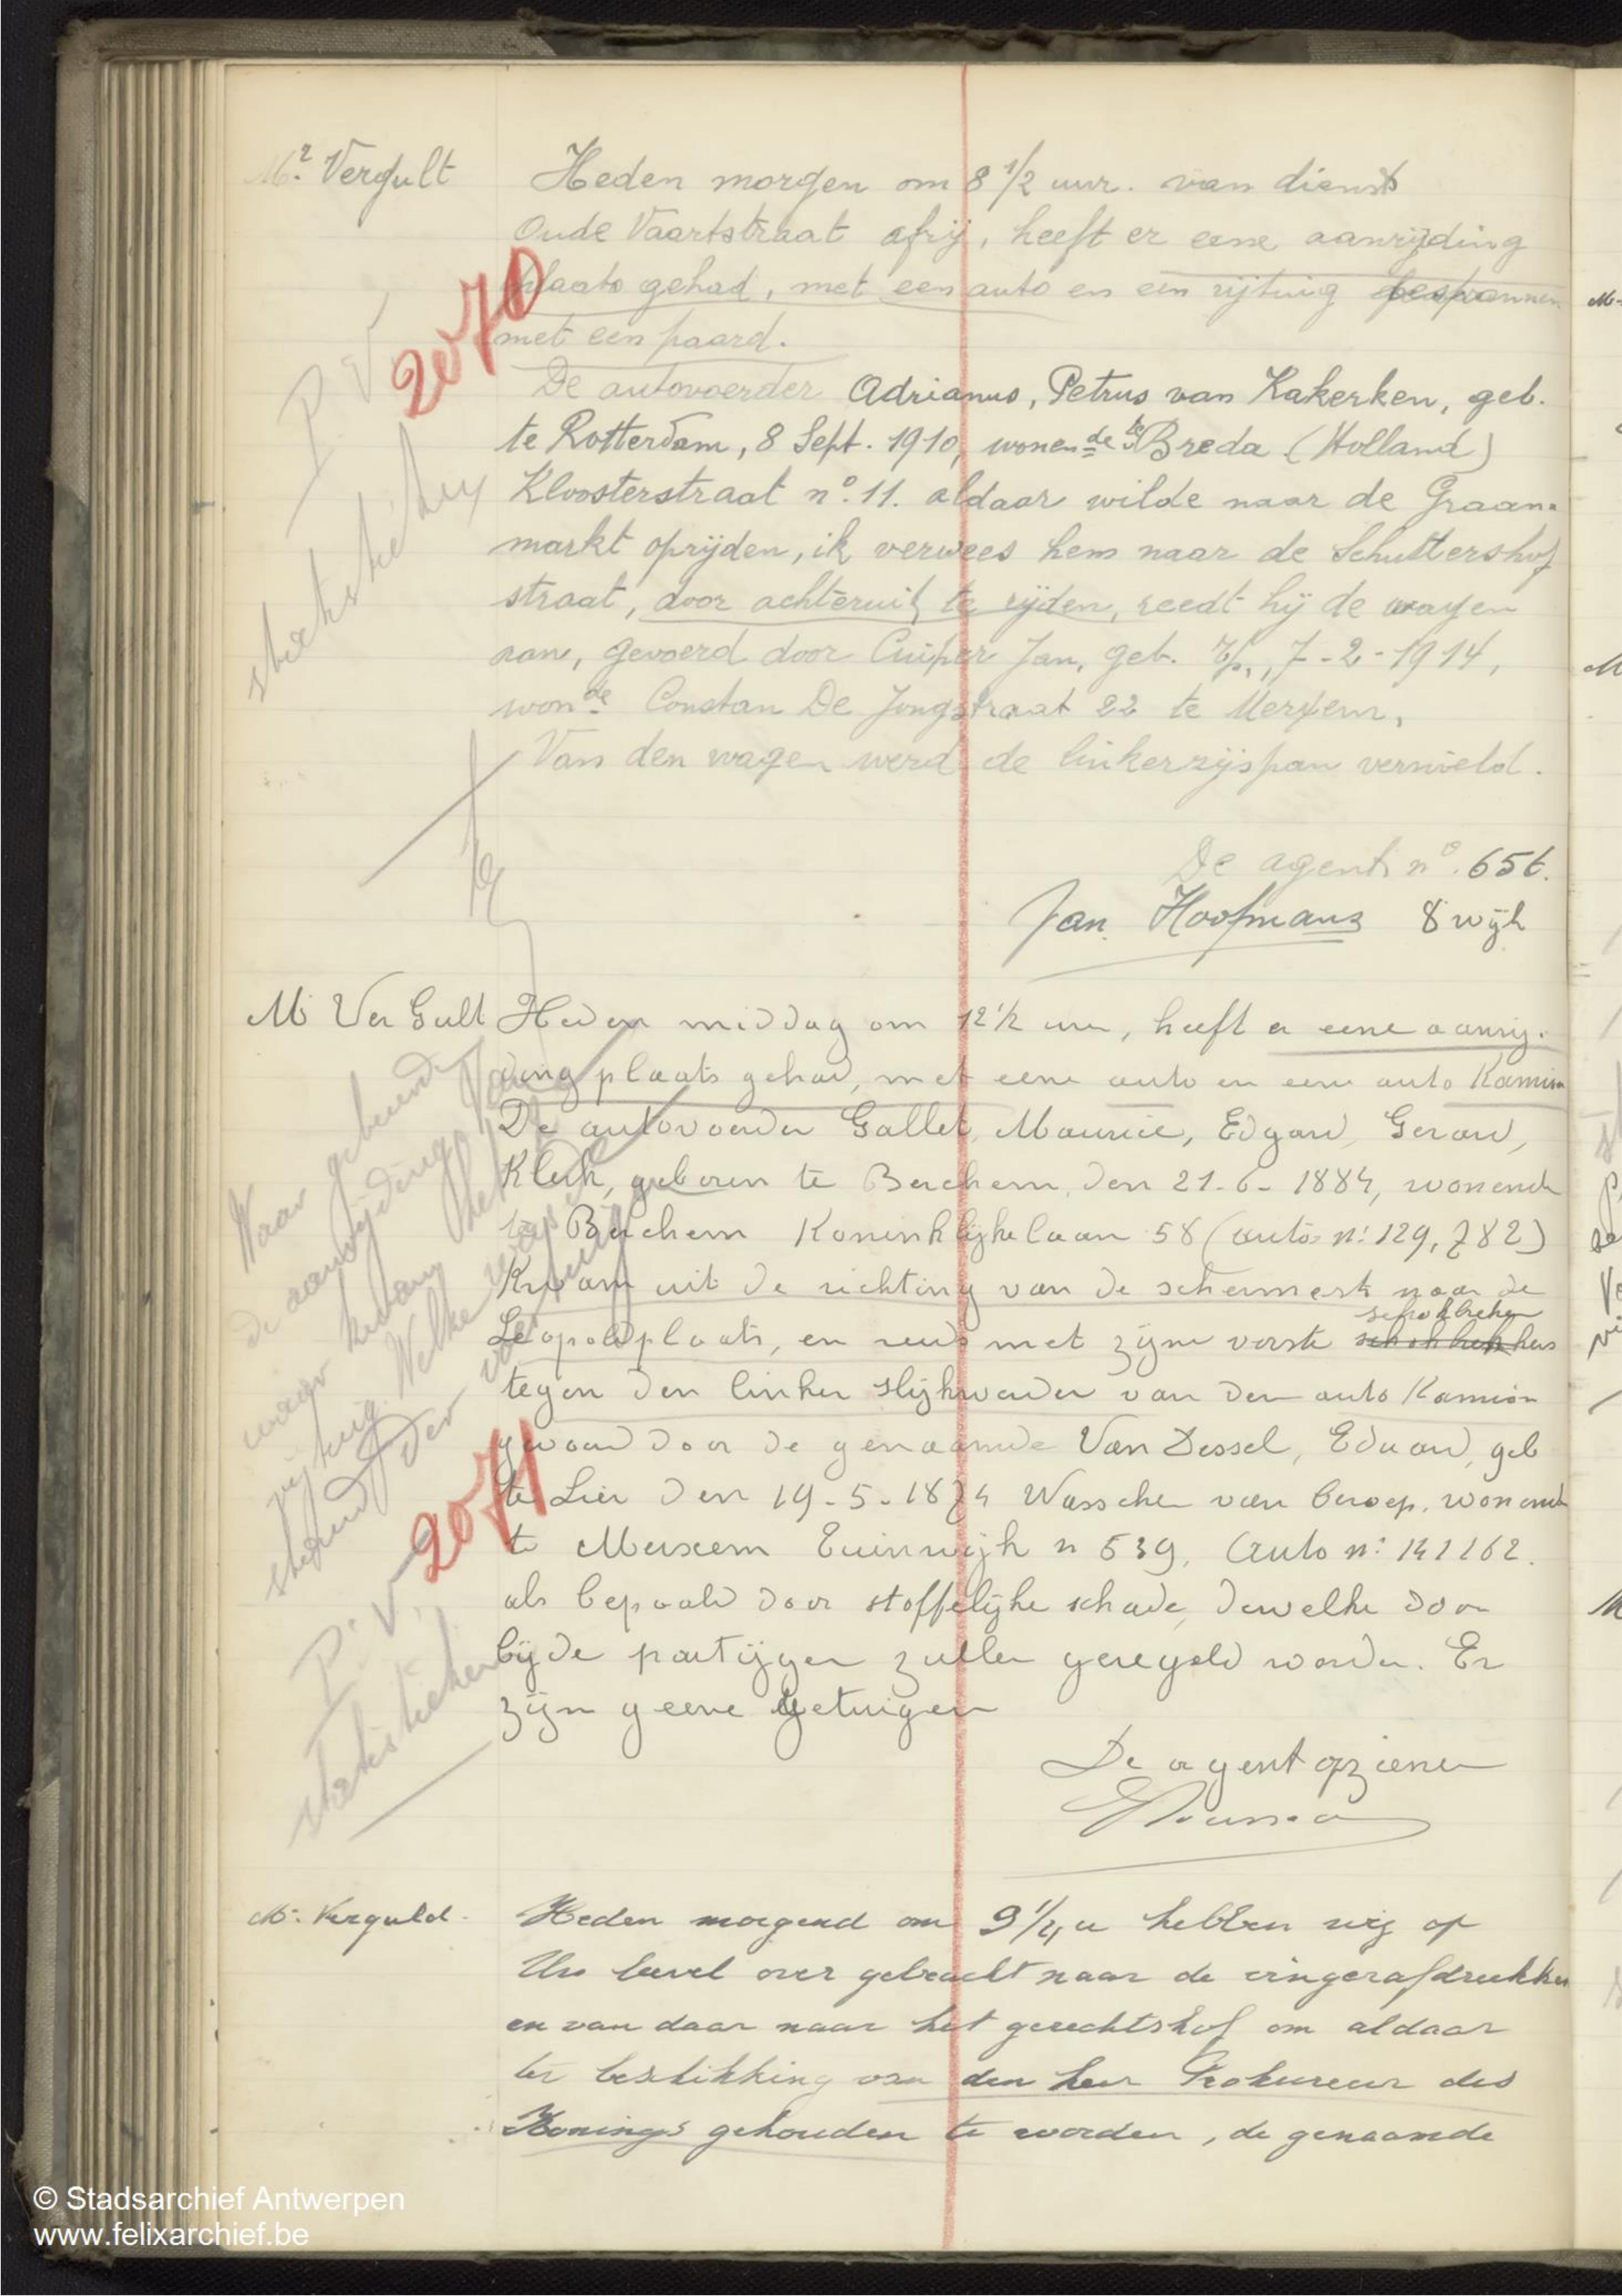 Mr. Vergult
Heden morgen om 8 1/2 uur. van dienst
Oude Vaartstraat afrij, heeft er eene aanrijding
plaats gehad, met een auto en een rijtuig bespannen
met een paard.
P.V.
2070
statistiek
De autovoerder Adrianus, Petrus van Kakerken, geb.
te Rotterdam, 8 Sept. 1910, wonende te Breda (Holland)
Kloosterstraat n° 11. aldaar wilde naar de Graan-
markt oprijden, ik verwees hem naar de Schuttershof
straat, door achteruit te rijden, reedt hij de wagen
aan, gevoerd door Cuiper Jan, geb. 7-2-1914,
wonde Constan De Jongstraat 22 te Merxem,
Van den wagen werd de linkerzijspan vernield.
De agent n° 656.
Jan Hoofmans 8 wijk
M Ver Gult
Heden middag om 12 1/2 uur, heeft er eene aanrij-
ding plaats gehad, met eene auto en eene auto Kamion
De autovoerder Gallet, Maurice, Edgard, Gerard,
Klerk, geboren te Berchem, den 21-6-1884, wonende
te Berchem Koninklijkelaan 58 (auto n: 129,782)
Kwam uit de richting van de schermerstr naar de
Leopoldplaats, en reed met zijne voorste schokbreker
tegen den linker slijkweerder van den auto Kamion
gevoerd door de genaamde Van Dessel, Eduard, geb
te Lier den 19-5-1874 Wasscher van beroep, wonende
te Merxem Tuinwijk n 539, (auto n: 141162.
als bepaald door stoffelijke schade, dewelke door
bijde partijgen zullen geregeld worden. Er
zijn geene getuigen
Waar gebeurde
de aanrijding Van
waar kwam het
rijtuig Welke
stand der
2071
P.V.
statistieken
De agent opziener
M. Verguld.
Heden morgend om 9 1/4 u hebben wij op
Uw bevel over gebracht naar de vingerafdrukken
en van daar naar het gerechtshof om aldaar
ter beschikking van den heer Prokureur des
Konings gehouden te worden, de genaamde
© Stadsarchief Antwerpen
www.felixarchief.be